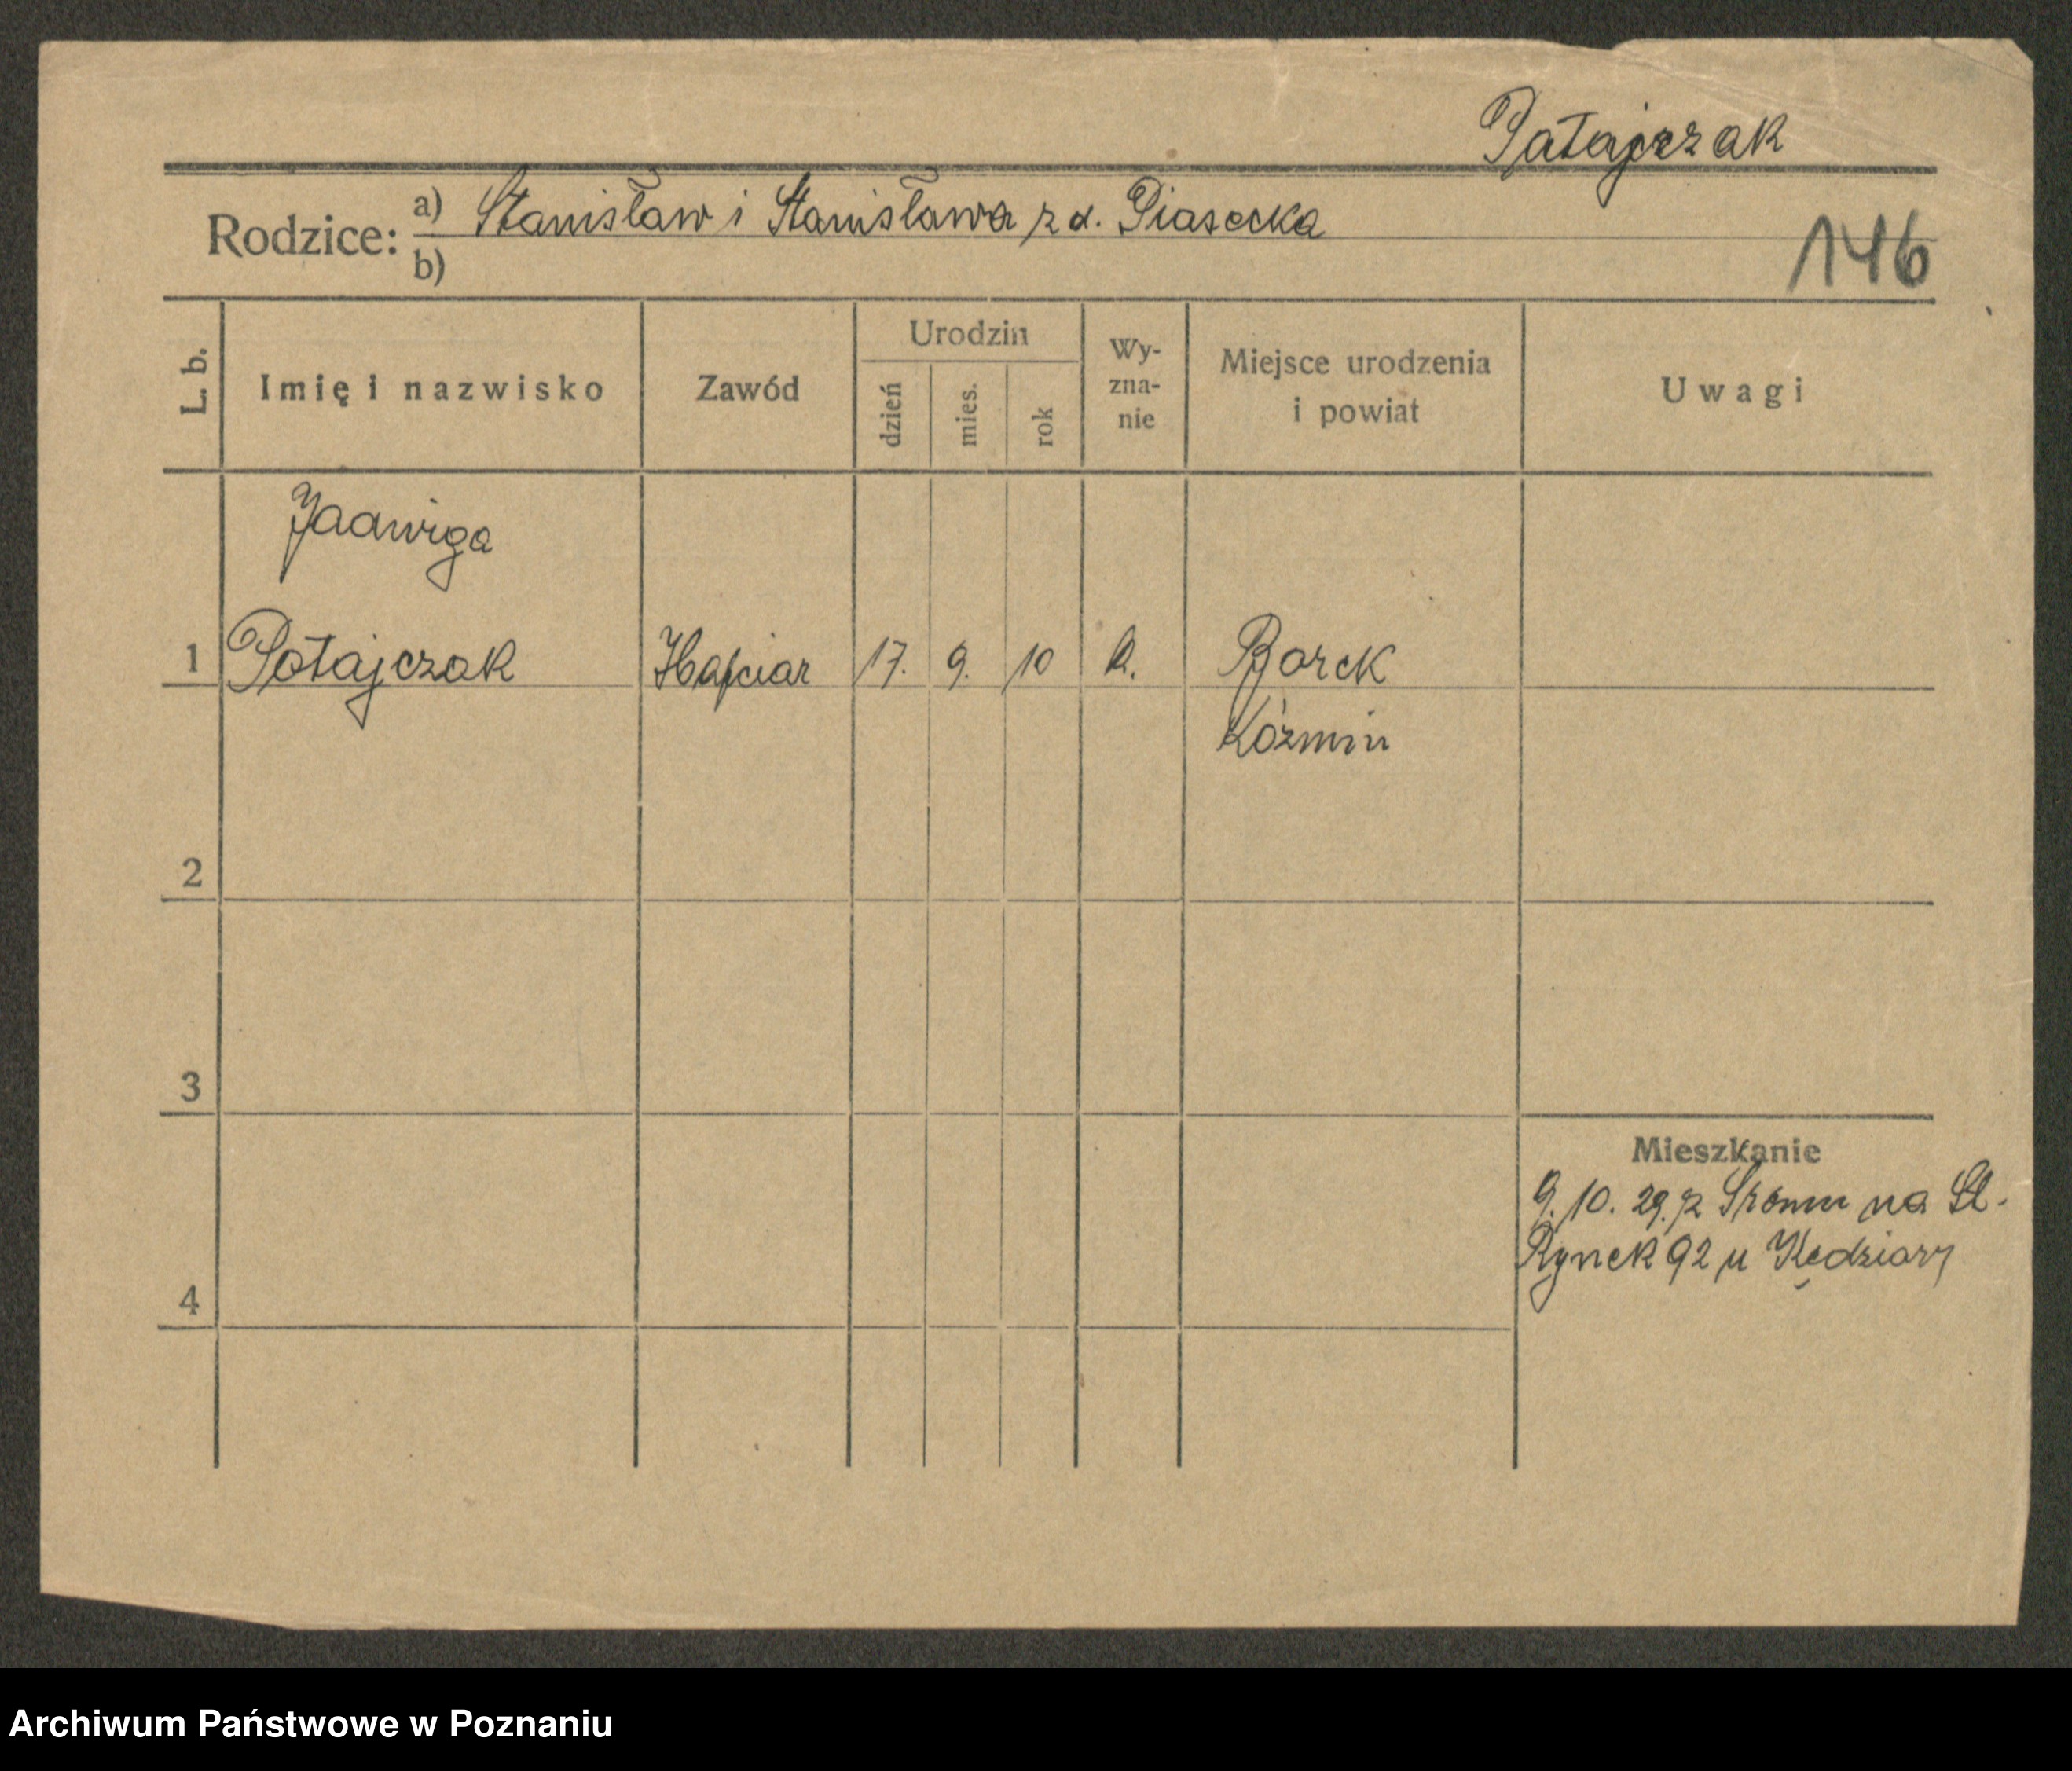 Patajczak
Rodzice: a) Stanisław i Stanisława z d. Piasecka
b)
146
L. b.
Imię i nazwisko
Zawód
Urodzin
dzień
mies.
rok
Wy-
zna-
nie
Miejsce urodzenia
i powiat
Uwagi
Jadwiga
1 Patajczak Hafciar 17. 9. 10 k. Borek
Koźmin
2
3
Mieszkanie
9. 10. 29. z Śremu na St.
Rynek 92 u Kędziory
4
Archiwum Państwowe w Poznaniu